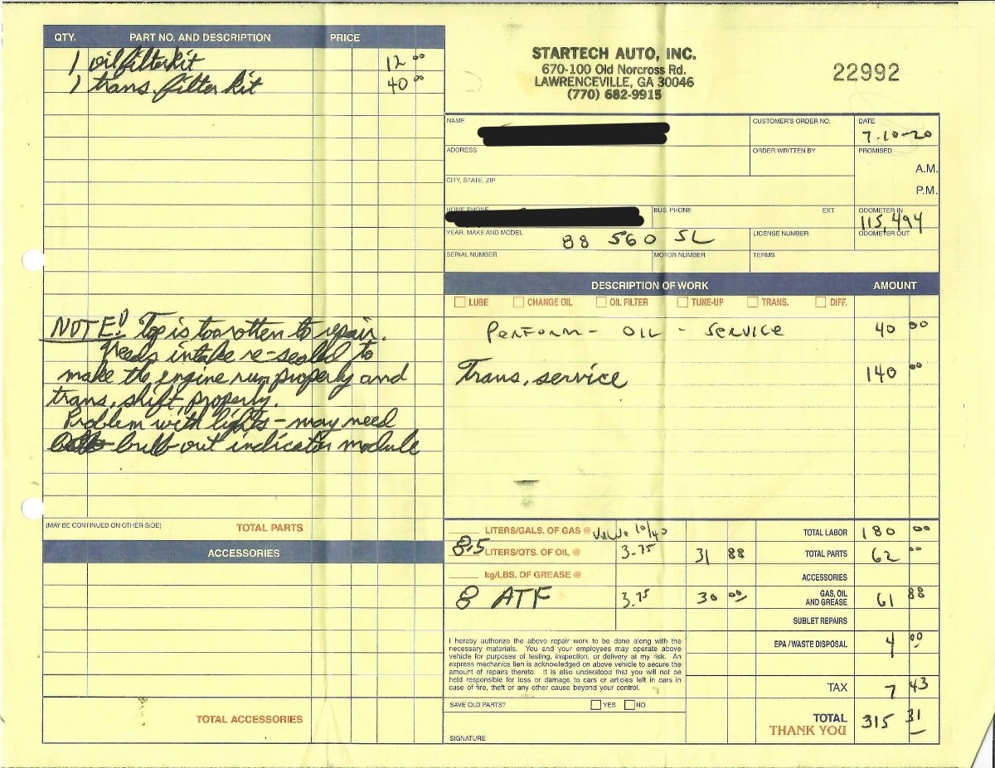 QTY. PART NO. AND DESCRIPTION PRICE
1 oil filter kit 12 00
1 trans. filter kit 40 00
NOTE! Top is too rotten to repair.
Needs intake re-sealed to
make the engine run properly and
trans. shift properly.
Problem with lights - may need
bulb out indicator module
(MAY BE CONTINUED ON OTHER SIDE) TOTAL PARTS
ACCESSORIES
TOTAL ACCESSORIES
STARTECH AUTO, INC.
670-100 Old Norcross Rd.
LAWRENCEVILLE, GA 30046
(770) 682-9915
22992
NAME CUSTOMER'S ORDER NO. DATE
7-10-20
ADDRESS ORDER WRITTEN BY PROMISED
A.M.
CITY, STATE, ZIP
P.M.
HOME PHONE BUS. PHONE EXT ODOMETER IN
115,494
YEAR, MAKE AND MODEL 88 560 SL LICENSE NUMBER ODOMETER OUT
SERIAL NUMBER MOTOR NUMBER TERMS
DESCRIPTION OF WORK AMOUNT
LUBE CHANGE OIL OIL FILTER TUNE-UP TRANS. DIFF.
PERFORM - OIL - SERVICE 40 00
Trans. service 140 00
LITERS/GALS. OF GAS @ 10/40 TOTAL LABOR 180 00
8.5 LITERS/QTS. OF OIL @ 3.75 31 88 TOTAL PARTS 62 00
kg/LBS. OF GREASE @ ACCESSORIES
8 ATF 3.75 30 00 GAS, OIL AND GREASE 61 88
SUBLET REPAIRS
EPA / WASTE DISPOSAL 4 00
TAX 7 43
TOTAL 315 31
THANK YOU
I hereby authorize the above repair work to be done along with the
necessary materials. You and your employees may operate above
vehicle for purposes of testing, inspection, or delivery at my risk. An
express mechanics lien is acknowledged on above vehicle to secure the
amount of repairs thereto. It is also understood that you will not be
held responsible for loss or damage to cars or articles left in cars in
case of fire, theft or any other cause beyond your control.
SAVE OLD PARTS? YES NO
SIGNATURE